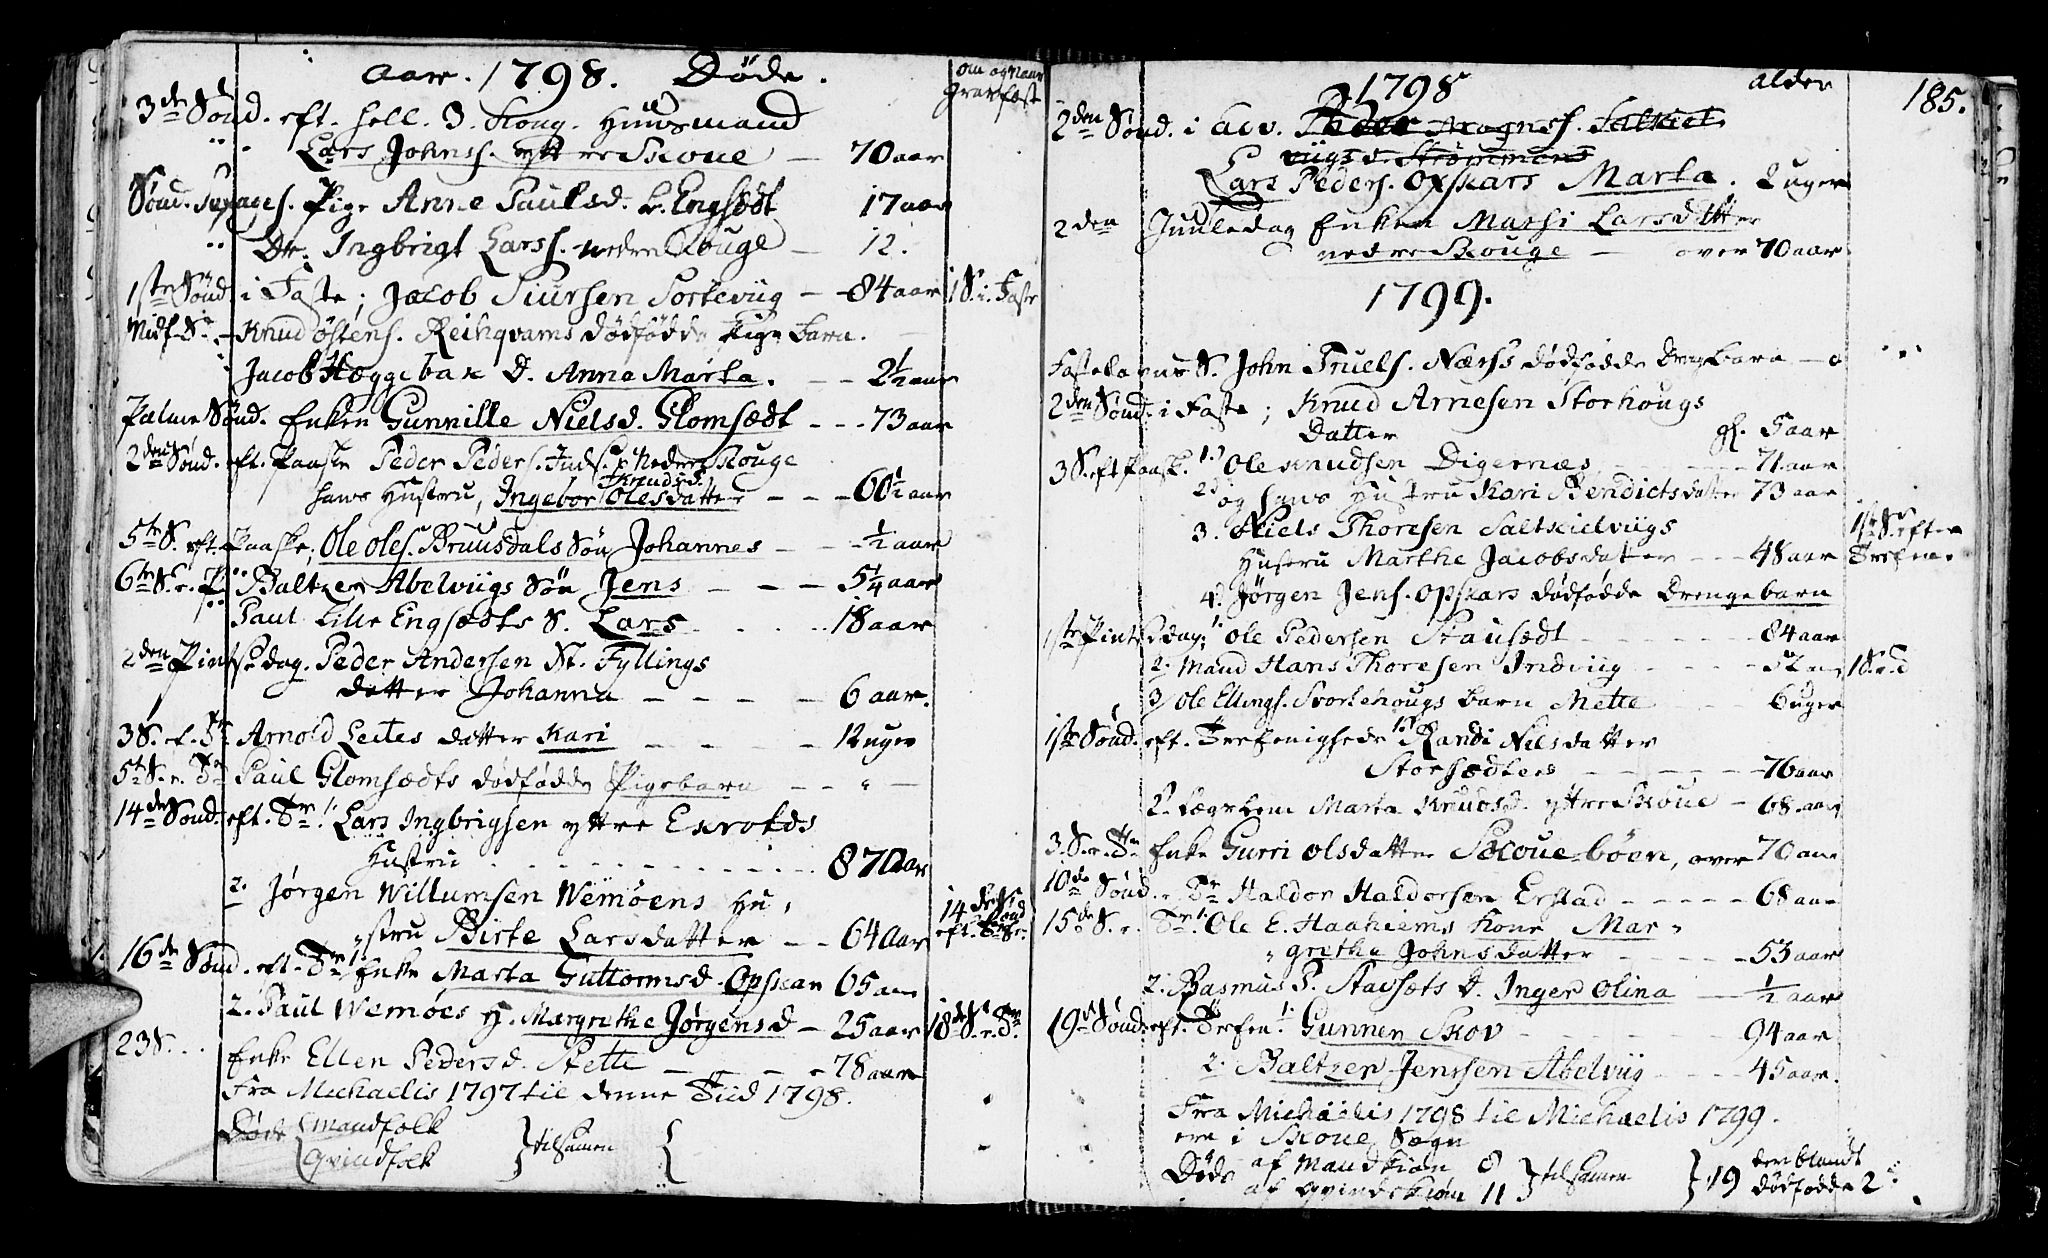 Aar. 1798. Døde.
om og naar
Gravfæst
3de Sønd. eft. hell. 3 Kong. Huusmand
Lars Johnss. yttre Skoue — 70 aar
Sønd. Sexages. Pige Anne Paulsd. L. Engsædt 17 aar
Dr. Ingbrigt Larss. nedre Skouge — 12.
1ste Sønd i Faste; Jacob Siursen Sortevig — 84 aar 1 S. i. Faste
Midf. S. — Knud Østens. Reihqvams dødfødde Pige Barn.
Jacob Heggebak D. Anne Marta. — 2½ aar
Palme Sønd. Enken Gunnille Nielsd. Glomsædt — 73 aar
2den Sønd. eft. Paaske Peder Peders. Inds. p. Nedre Skouge
Knudsd.
hans Hustru, Ingebor Olesdatter — 60½ aar
5te S. eft. Paaske; Ole Oles. Bruusdals Søn Johannes — ½ aar
6te S. e. P. Baltzer Abelviigs Søn Jens — 5¼ aar
Paul Lille Engsædts S. Lars 18 aar
2den Pintsedag. Peder Andersen St. Fyllings
datter Johanna — 6 aar.
3 S. ef. Tr. Arnold Leites datter Kari — 12 uger
5te S. e. Tr Paul Glomsædts dødfødde Pigebarn — " —
14de Sønd. eft. Tr. 1. Lars Ingbrigsen yttre Exrolds
Hustru 87 aar
2. Jørgen Willumsen Wemøens Hu,
"stru Birte Larsdatter — 64 aar
14de Sønd
eft. Tr.
16de Sønd. eft. Tr. 1. Enke Marta Guttormsd. Opskar 65 aar
2. Paul Wemøes H. Margrethe Jørgensd — 25 aar 18de S. e. Tr.
23 S. Enke Ellen Pedersd. Stette — 78 aar
Fra Michaelis 1797 til denne Tiid 1798.
Døde { Mandfolk
Qvindfolk } tilsamen {
1798 alder 185.
2den Sønd. i Adv. Peder Mognss. Saltkiel
viigs d. Strømmans
Lars Peders. Opskars Marta. 2 uger
2den Juuledag Enken Marsi Larsdatter
nedre Skouge — over 70 aar
1799.
Fastelavns S. John Truels. Nærss dødfødde Drengbarn — o
2den Sønd. i Faste; Knud Arnesen Storhougs
Datter gl. 5 aar
3 S. eft Paask. 1.) Ole Knudsen Digernæs — 71 aar
2) og hans Hustru Kari Bendictsdatter 73 aar
3. Niels Thoresen Saltkielviigs
Hustru Marthe Jacobsdatter — 48 aar
1ste S. efter
Trefen.
4. Jørgen Jens. Opskars dødfødde Drengebarn
1ste Pintsedag: 1. Ole Pedersen Stausædt — 84 aar
2. Mand Hans Thoresen Indviig 52 aar 1 S. e d
3/ Ole Ellings. Svortehougs barn Mette 6 uger
1ste Sønd. eft. Trefenighede 1.) Randi Nilsdatter
Storsædters — 76 aar
2. Lægslem Marta Knudsd. yttre Skoue — 68 aar
3. S. e. Tr. Enke Gurri Olsdatter Skoue-bøen, over 70 aar
10de Sønd. e. Tr Haldor Haldorsen Erstad — 68 aar
15de S. e. Tr. 1. Ole E. Haahiems Kone Mar-
"grethe Johnsdatter — 53 aar
2. Rasmus P. Stavsæts D. Inger Olina — ½ aar
19de Sønd. eft. Trefen. 1. Gunner Skov — 94 aar
2. Baltzer Jenssen Abelviig 45 aar.
Fra Michaelis 1798 til Michaelis 1799.
ere i Skoue Sogn
Døde af Mandkiøn 8
af Qvindekiøn 11 } tilsamen } 19 der blandt
dødfødde 2